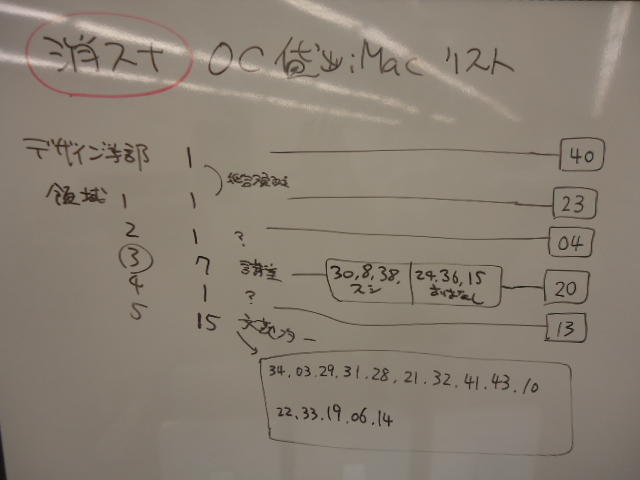 消スナ OC貸出iMacリスト
デザイン学部 1 40
領域 1 1 23
2 1 ? 04
3 7 講堂 30,8,38, スシ 24,36,15 20
4 1 ? 13
5 15
34.03.29.31.28.21.32.41.43.10
22.33.19.06.14